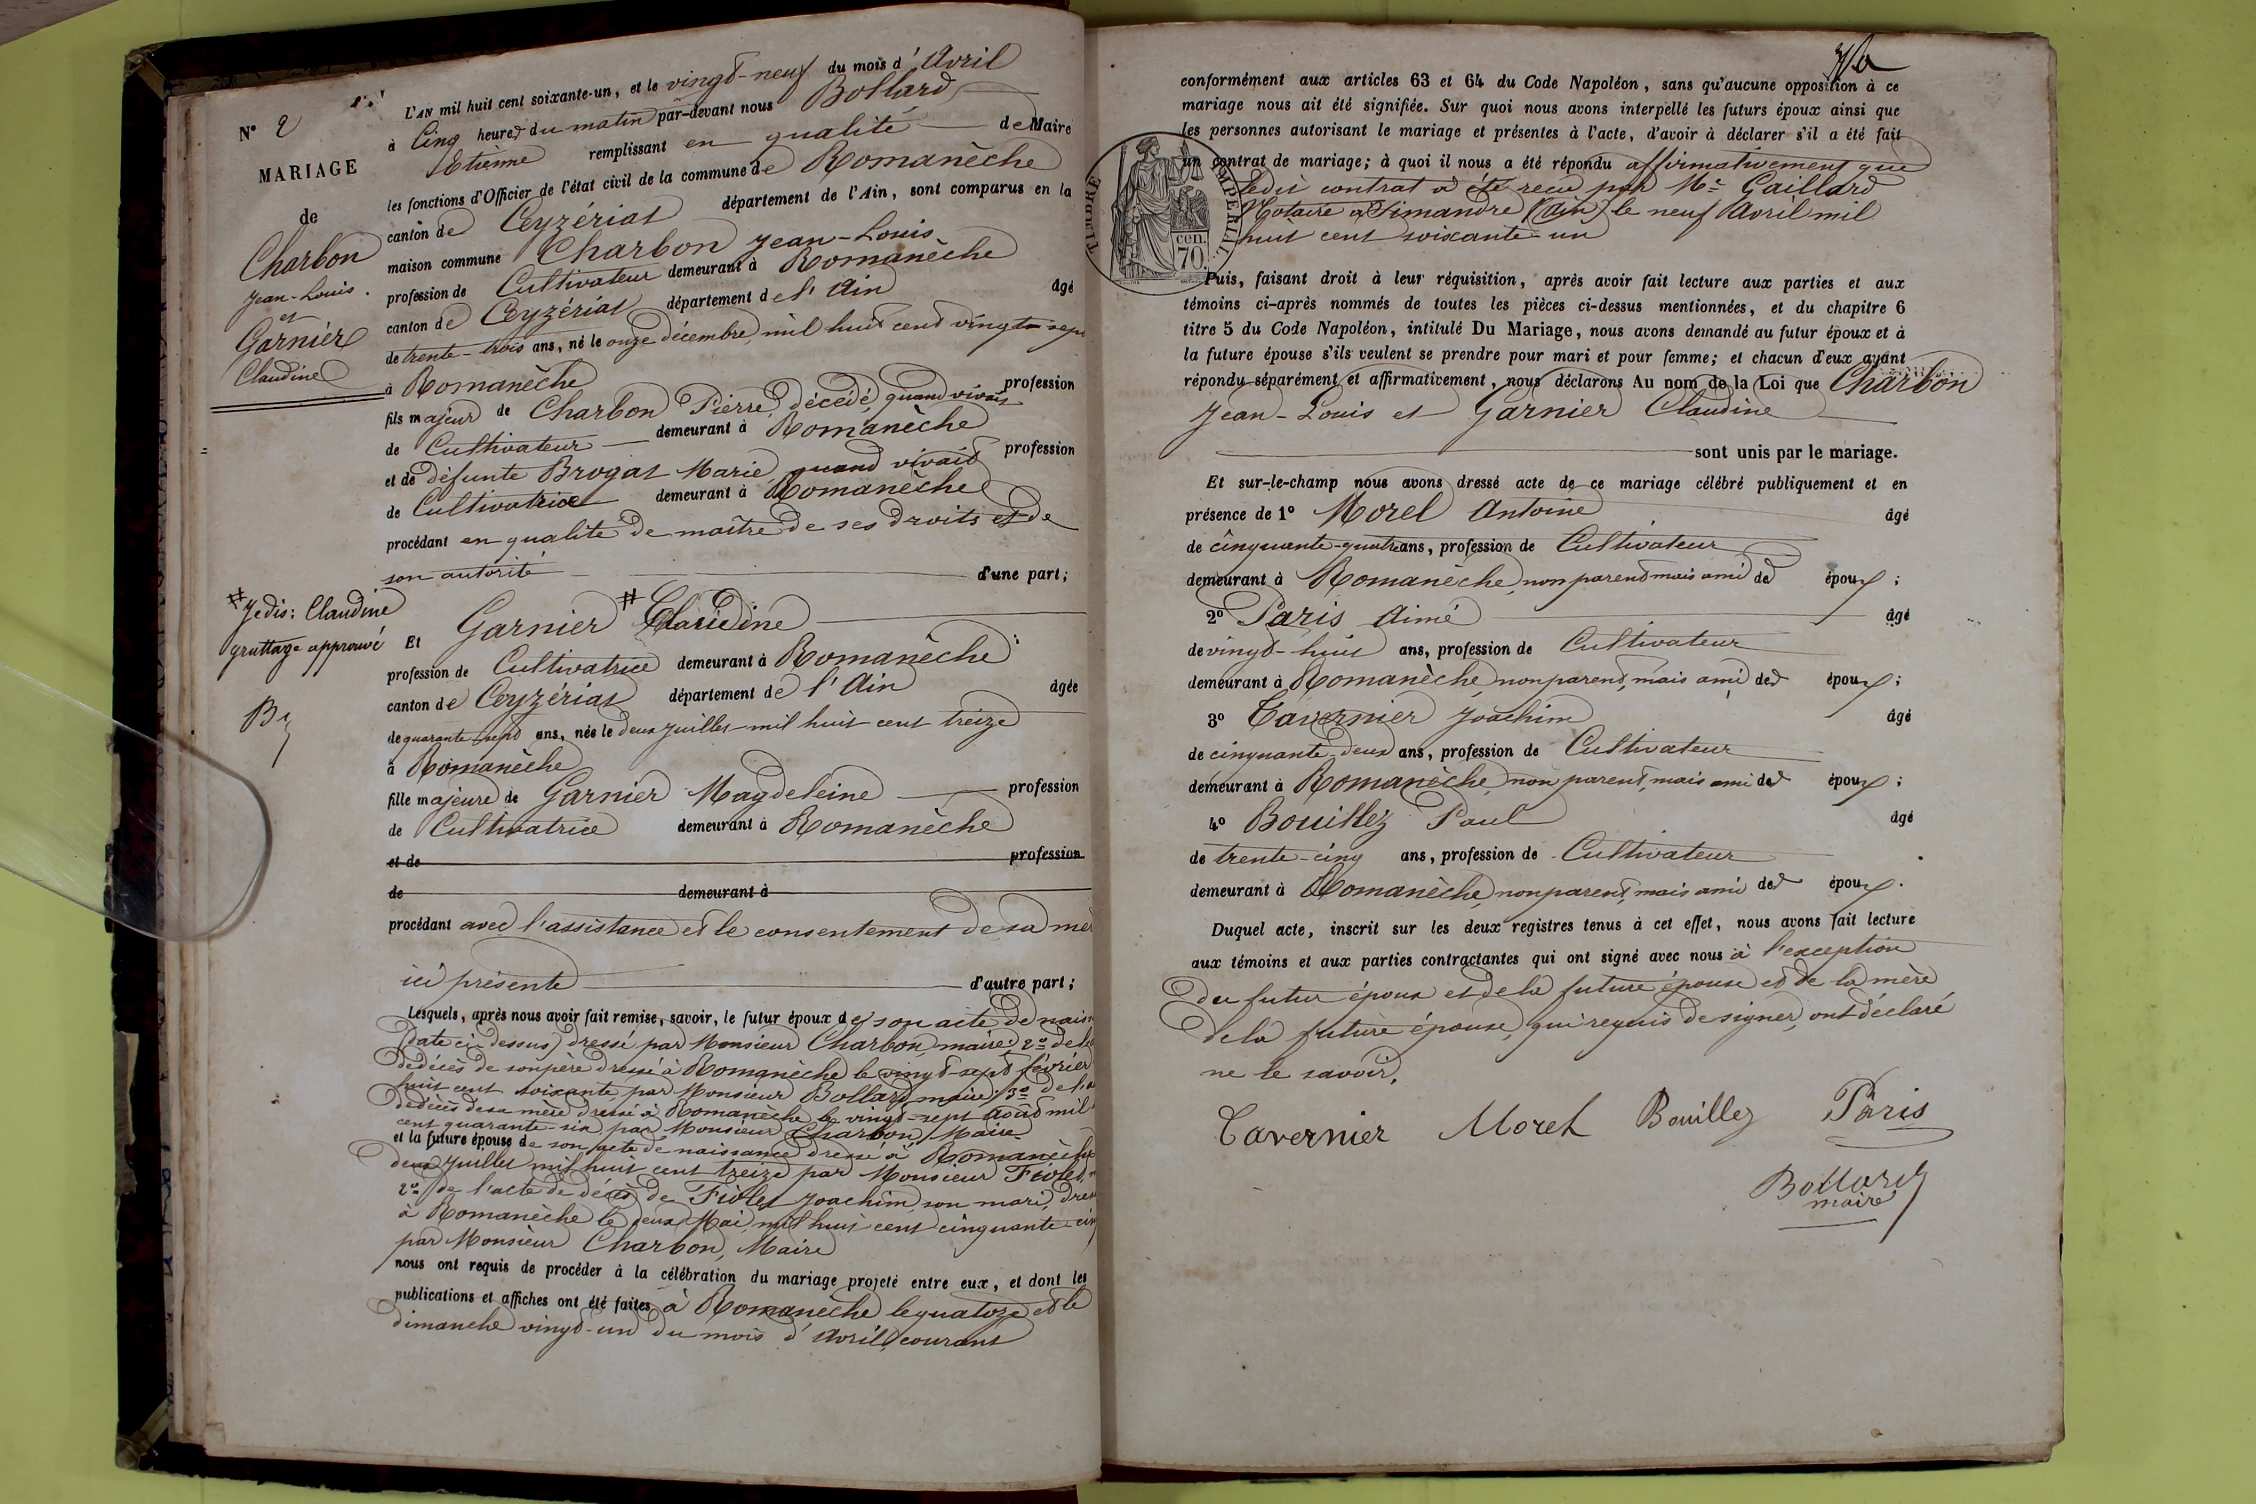 N° 2
MARIAGE
de
Charbon
Jean-Louis.
et
Garnier
Claudine
# Je dis: Claudine
grattage approuvé
L'AN mil huit cent soixante-un, et le vingt-neuf du mois d'Avril
à Cinq heures du matin par-devant nous Bollard
Etienne remplissant en qualité de Maire
les fonctions d'Officier de l'état civil de la commune de Romanèche
canton de Ceyzériat département de l'Ain, sont comparus en la
maison commune Charbon Jean-Louis
profession de Cultivateur demeurant à Romanèche
canton de Ceyzériat département de l'Ain âgé
de trente-trois ans, né le onze décembre mil huit cent vingt-sept
à Romanèche
fils majeur de Charbon Pierre, décédé, quand vivait profession
de Cultivateur demeurant à Romanèche
et de défunte Brogat Marie quand vivait profession
de Cultivatrice demeurant à Romanèche
procédant en qualité de maître de ses droits et de
son autorité d'une part;
Et Garnier # Claudine
profession de Cultivatrice demeurant à Romanèche
canton de Ceyzériat département de l'Ain âgée
de quarante-sept ans, née le deux Juillet mil huit cent treize
à Romanèche
fille majeure de Garnier Magdeleine profession
de Cultivatrice demeurant à Romanèche
et de profession
de demeurant à
procédant avec l'assistance et le consentement de sa
ici présente d'autre part;
Lesquels, après nous avoir fait remise, savoir, le futur époux de son acte de
(date ci-dessus) dressé par Monsieur Charbon, maire; 2° de
de décès de son père dressé à Romanèche le vingt-sept février
huit cent soixante par Monsieur Bollard maire; 3° de
de décès de sa mère dressé à Romanèche le vingt-sept Août mil
cent quarante-six par Monsieur Charbon, Maire
et la future épouse de son acte de naissance dressé à Romanèche
deux Juillet mil huit cent treize par Monsieur Fiolet
2° de l'acte de décès de Fiolet Joachim, son mari,
à Romanèche le deux Mai mil huit cent cinquante
par Monsieur Charbon, Maire
nous ont requis de procéder à la célébration du mariage projeté entre eux, et dont les
publications et affiches ont été faites à Romanèche le quatorze et le
dimanche vingt-un du mois d'Avril courant
conformément aux articles 63 et 64 du Code Napoléon, sans qu'aucune opposition à ce
mariage nous ait été signifiée. Sur quoi nous avons interpellé les futurs époux ainsi que
les personnes autorisant le mariage et présentes à l'acte, d'avoir à déclarer s'il a été fait
un contrat de mariage; à quoi il nous a été répondu affirmativement que
ledit contrat a été reçu par Me Gaillard
Notaire à Simandre (Ain) le neuf Avril mil
huit cent soixante-un
TIMBRE IMPERIAL
cen. 70
Puis, faisant droit à leur réquisition, après avoir fait lecture aux parties et aux
témoins ci-après nommés de toutes les pièces ci-dessus mentionnées, et du chapitre 6
titre 5 du Code Napoléon, intitulé Du Mariage, nous avons demandé au futur époux et à
la future épouse s'ils veulent se prendre pour mari et pour femme; et chacun d'eux ayant
répondu séparément et affirmativement, nous déclarons Au nom de la Loi que Charbon
Jean-Louis et Garnier Claudine
sont unis par le mariage.
Et sur-le-champ nous avons dressé acte de ce mariage célébré publiquement et en
présence de 1° Morel Antoine âgé
de cinquante-quatre ans, profession de Cultivateur
demeurant à Romanèche, non parent mais ami des époux;
2° Paris Aimé âgé
de vingt-huit ans, profession de Cultivateur
demeurant à Romanèche, non parent, mais ami des époux;
3° Tavernier Joachim âgé
de cinquante-deux ans, profession de Cultivateur
demeurant à Romanèche, non parent, mais ami des époux;
4° Bouillez Paul âgé
de trente-cinq ans, profession de Cultivateur
demeurant à Romanèche, non parent, mais ami des époux.
Duquel acte, inscrit sur les deux registres tenus à cet effet, nous avons fait lecture
aux témoins et aux parties contractantes qui ont signé avec nous à l'exception
du futur époux et de la future épouse et de la mère
de la future épouse, qui requis de signer, ont déclaré
ne le savoir.
Tavernier Morel Bouillez Pâris
Bollard
maire